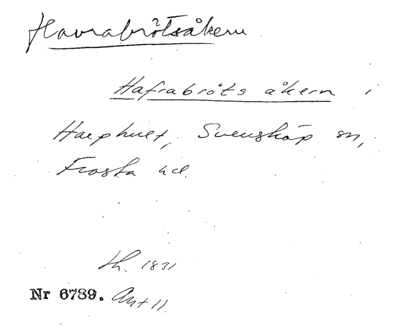 Havrabrötsåkern
Hafrabröts åkern i
Harphult, Svensköp sn,
Frosta hd.
lh. 1831
Nr 6789. Ant 11.